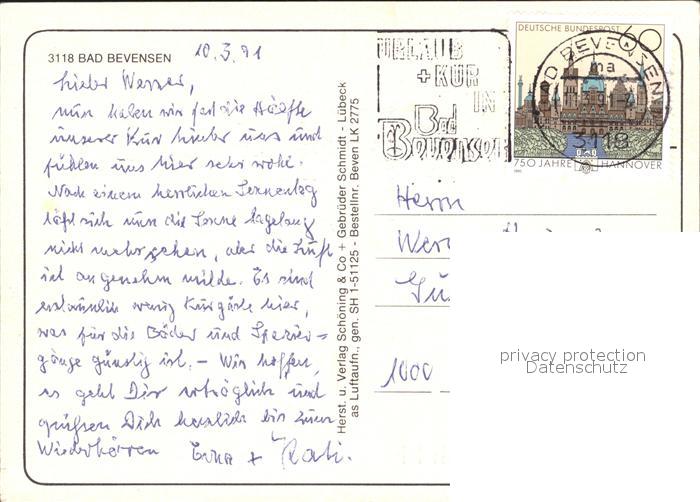 3118 BAD BEVENSEN
10.3.91
Lieber Werner,
nun haben wir fast die Hälfte
unserer Kur hinter uns und
fühlen uns hier sehr wohl.
Nach einem herrlichen Sonnentag
läßt sich nun die Sonne tagelang
nicht mehr sehen, aber die Luft
ist angenehm milde. Es sind
erstaunlich wenig Kurgäste hier,
was für die Bäder und Spazier-
gänge günstig ist. – Wir hoffen,
es geht Dir erträglich und
grüßen Dich herzlich bis zum
Wiederhören
Herst. u. Verlag Schöning & Co + Gebrüder Schmidt - Lübeck
as Luftaufn., gen. SH 1-51125 - Bestellnr. Beven LK 2775
URLAUB
+ KUR
IN
Bad
Bevensen
DEUTSCHE BUNDESPOST 60
BAD BEVENSEN
ma
3118
750 JAHRE HANNOVER
Herrn
Wer
1000
privacy protection
Datenschutz